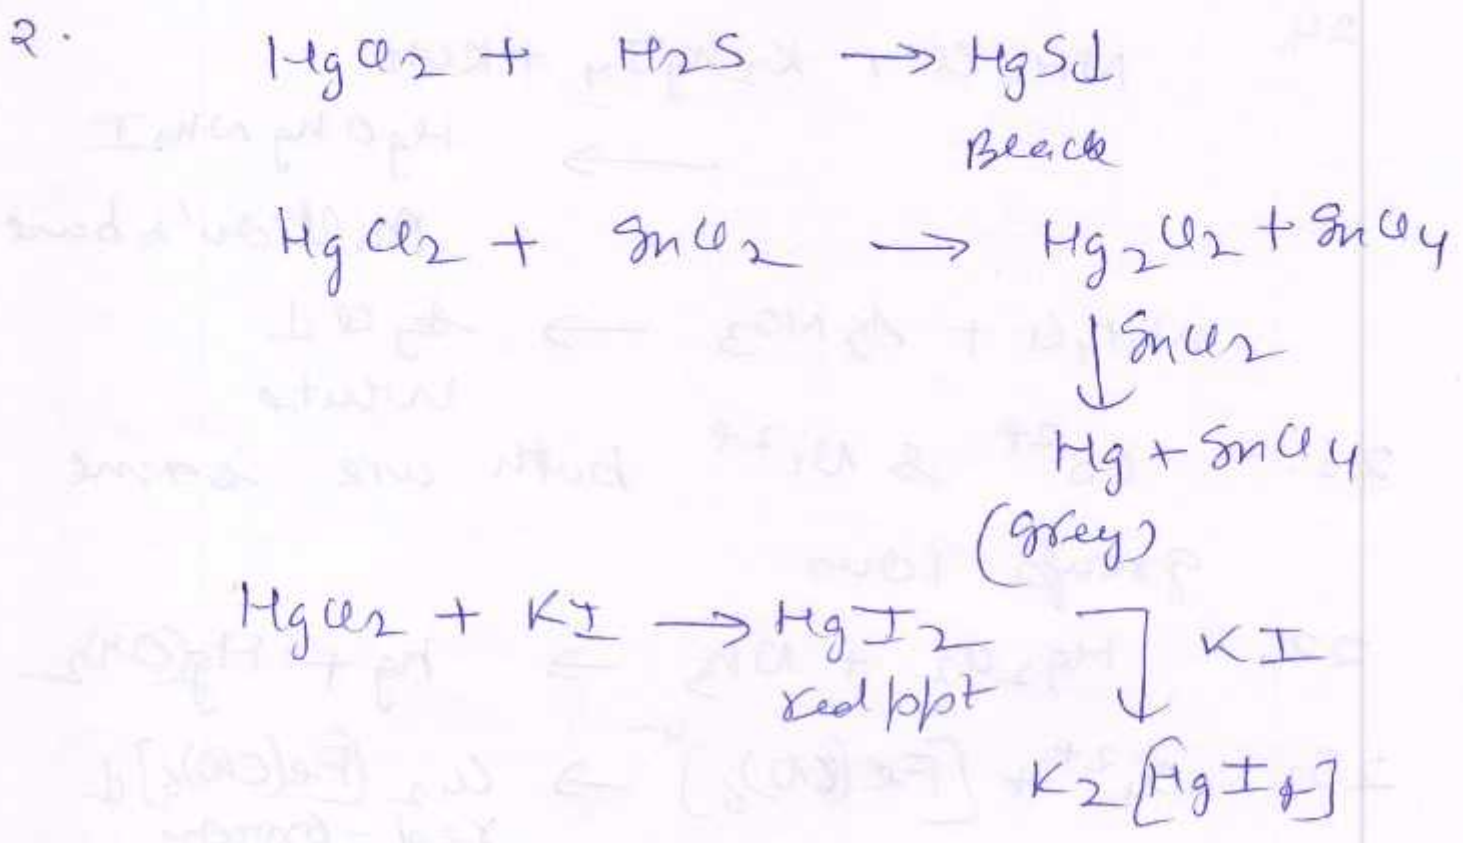 2.
HgCl2 + H2S → HgS↓
Black
HgCl2 + SnCl2 → Hg2Cl2 + SnCl4
↓ SnCl2
Hg + SnCl4
(Grey)
HgCl2 + KI → HgI2 KI
red ppt
K2[HgI4]